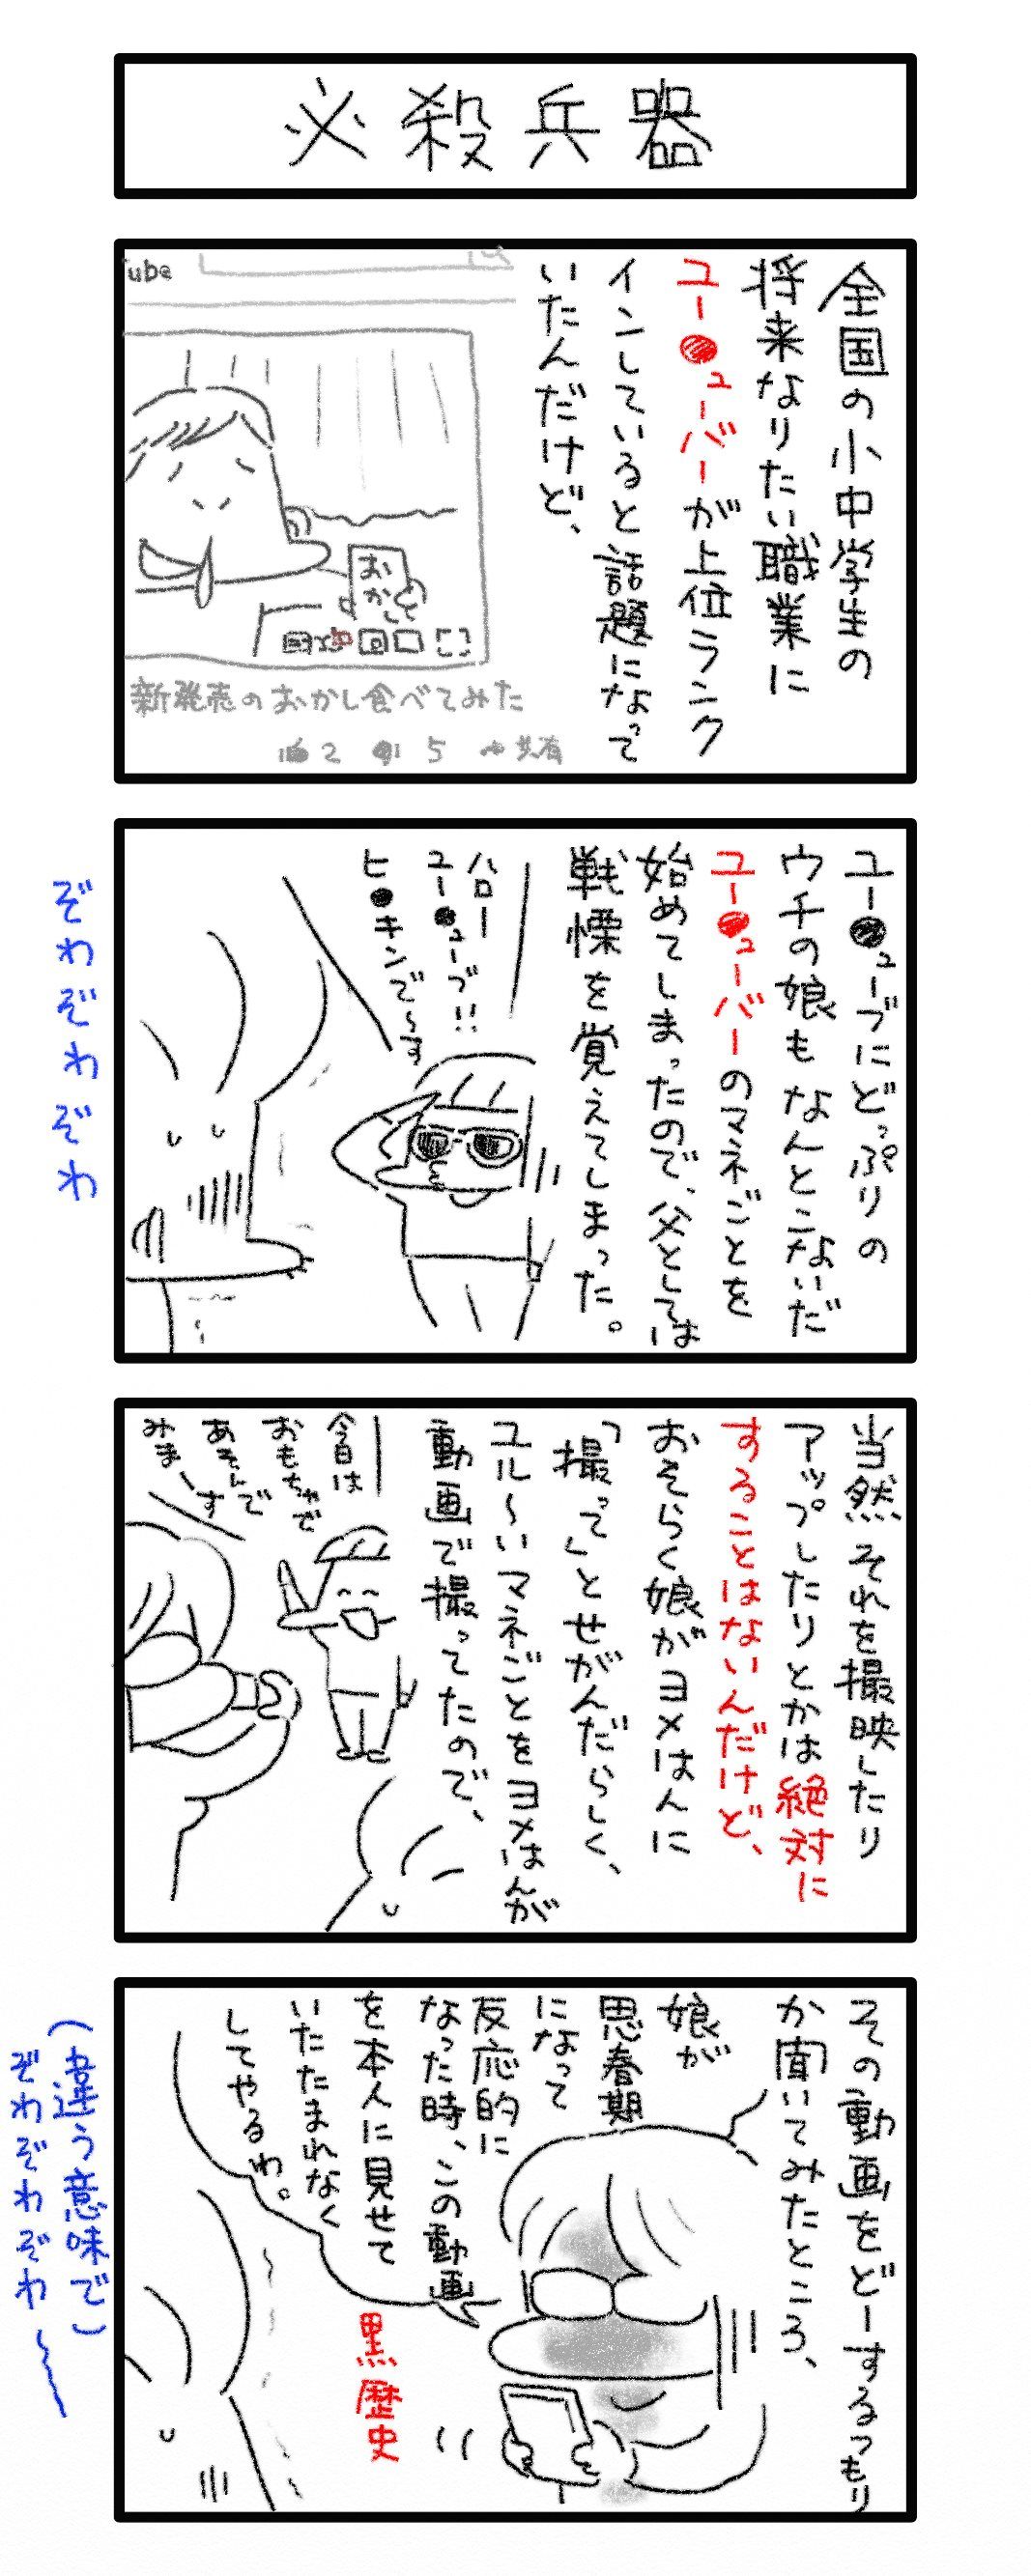 必殺兵器
全国の小中学生の
将来なりたい職業に
ユー●ューバーが上位ランク
インしていると話題になって
いたんだけど、
ube
おかし
新発売のおかし食べてみた
2 5 共有
ユー●ューブにどっぷりの
ウチの娘もなんとこないだ
ユー●ューバーのマネごとを
始めてしまったので、父としては
戦慄を覚えてしまった。
ハロー
ユー●ューブ!!
ヒ●キンで〜す
ぞわぞわぞわ
当然それを撮映したり
アップしたりとかは絶対に
することはないんだけど、
おそらく娘がヨメはんに
「撮って」とせがんだらしく、
ユル〜いマネごとをヨメはんが
動画で撮ってたので、
今日は
おもちゃで
あそんで
みまーす
その動画をどーするつもり
か聞いてみたところ、
娘が
思春期
になって
反応的に
なった時、この動画
を本人に見せて
いたたまれなく
してやるわ。
黒歴史
(違う意味で)
ぞわぞわぞわ〜